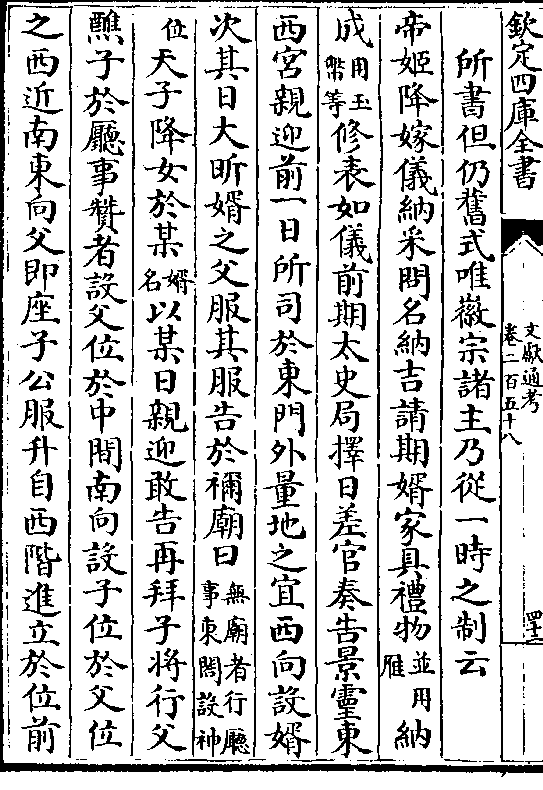 欽定四庫全書
文獻通考
卷二百五十八
四十三
所書但仍舊式唯徽宗諸主乃從一時之制云
帝姬降嫁儀納采問名納吉請期婿家具禮物並用鴈納
成用玉幣等修表如儀前期太史局擇日差官奏告景靈東
西宮親迎前一日所司於東門外量地之宜西向設婿
次其日大昕婿之父服其服告於禰廟曰無廟者行廳事東閤設神
位天子降女於某婿名以某日親迎敢告再拜子將行父
醮子於廳事贊者設父位於中間南向設子位於父位
之西近南東向父即座子公服升自西階進立於位前